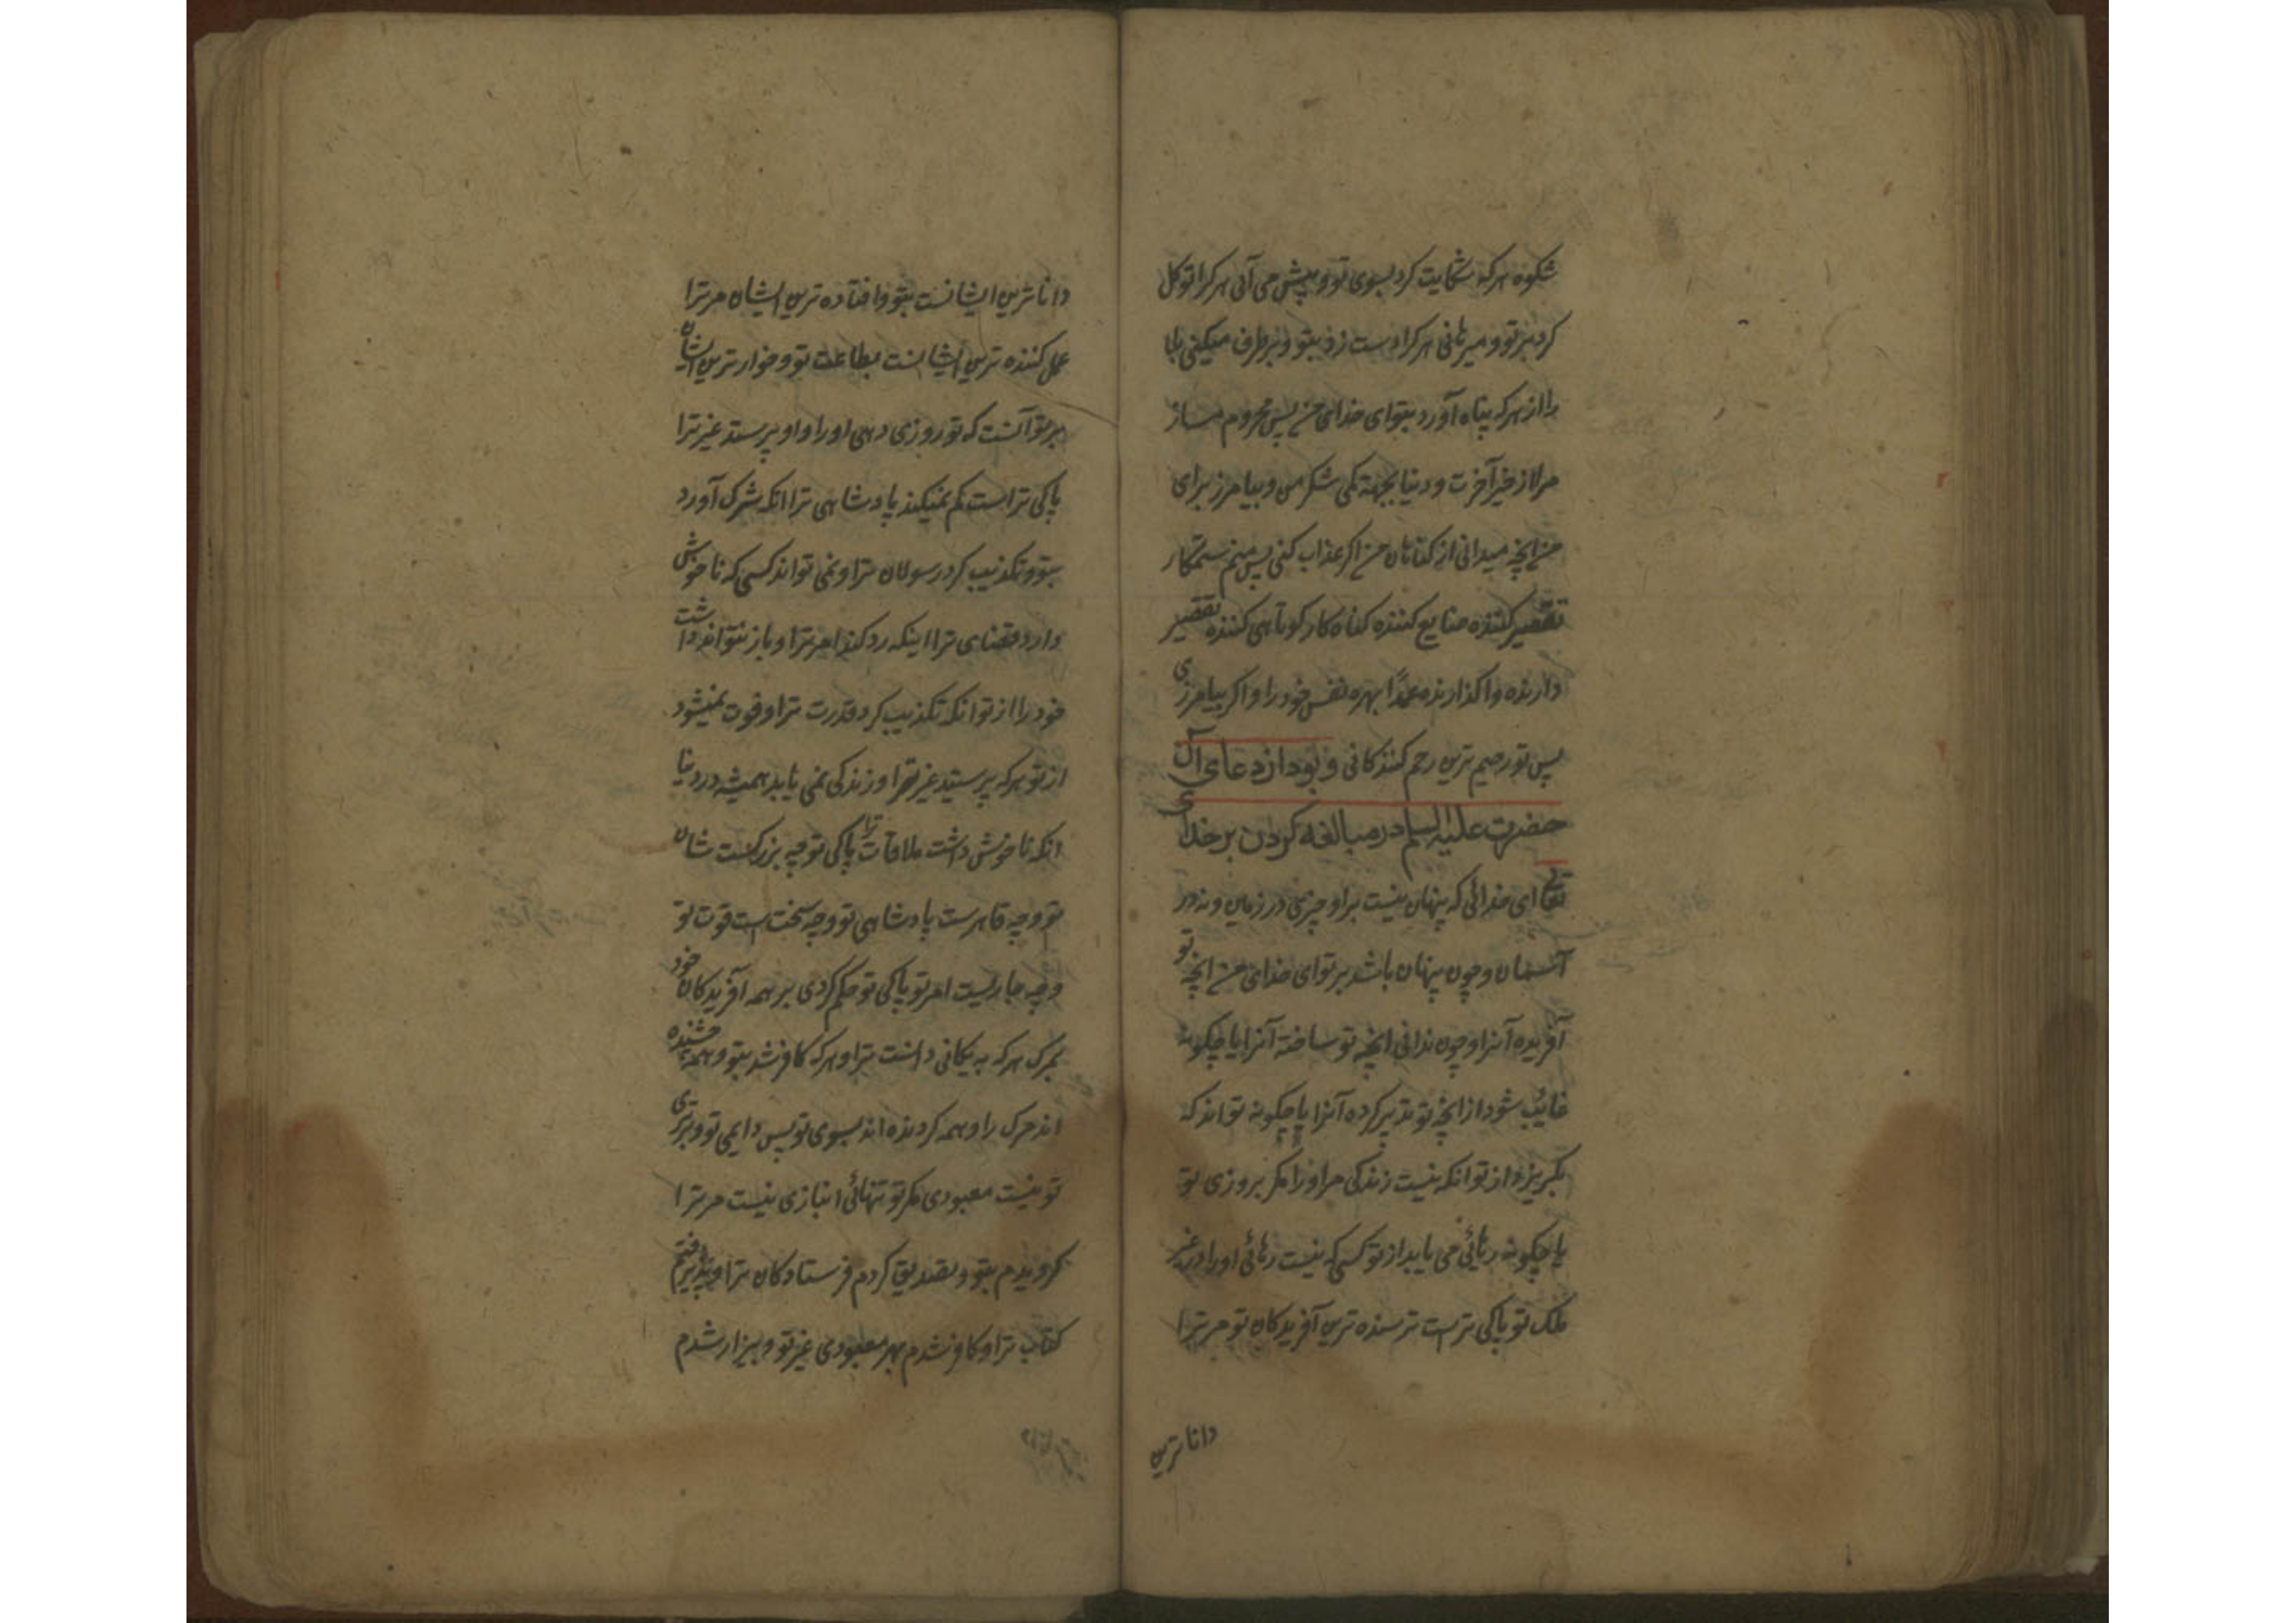 شکوه هرکه شکایت کرد بسوی تو و پیش می آئی هرکرا توکل
کرد بر تو و میرهانی هرکرا دست زد بتو و برطرف میکنی بلا
را از هرکه پناه آورد بتو ای خدای من پس محروم مساز
مرا از خیر آخرت و دنیا بجهة کمی شکر من و بیامرز برای
من انچه میدانی از کناهان من اکر عذاب کنی پس منم ستمکار
تقصیر کننده ضایع کننده کناه کار کوتاهی کننده تقصیر
دارنده واکذارنده عمدًا بهره نفس خود را و اکر بیامرزی
پس تو رحیم ترین رحم کنندکانی و بود از دعای آن
حضرت علیه السلم در مبالغه کردن بر خدای
تعالی ای خدائی که پنهان نیست بر او چیزی در زمین و نه در
آسمان و چون پنهان باشد بر تو ای خدای من انچه تو
آفریده آنرا و چون ندانی انچه تو ساخته آنرا یا چکونه
غائب شود از انچه تو تدبیر کرده آنرا یا چکونه تواند که
بگریزد از تو انکه نیست زندکی مر او را مکر بروزی تو
یا چکونه رهائی می یابد از تو کسی که نیست رهائی او را در غیر
ملک تو پاکی تراست ترسنده ترین آفریدکان تو مر ترا
دانا ترین
دانا ترین ایشانست بتو و افتاده ترین ایشان مر ترا
عمل کننده ترین ایشانست بطاعت تو و خوار ترین ایشان
بر تو آنست که تو روزی دهی او را و او پرستد غیر ترا
پاکی تراست کم نمیکند پادشاهی ترا انکه شرک آورد
بتو و تکذیب کرد رسولان ترا و نمی تواند کسی که ناخوش
دارد قضای ترا اینکه رد کند امر ترا و باز نتواند داشت
خود را از تو انکه تکذیب کرد قدرت ترا و فوت نمیشود
از تو هرکه پرستید غیر ترا و زندکی نمی یابد همیشه در دنیا
انکه ناخوش داشت ملاقات ترا پاکی تو چه بزرکست شان
تو و چه قاهرست پادشاهی تو و چه سخت است قوت تو
و چه جاریست امر تو پاکی تو حکم کردی بر همه آفریدکان خود
بمرک هرکه به یکانی دانست ترا و هرکه کافر شد بتو و همه چشنده
اند مرک را و همه کردنده اند بسوی تو پس دایمی تو و برتری
تو نیست معبودی مکر تو تنهائی انبازی نیست مر ترا
کرویدم بتو و تصدیق کردم فرستادکان ترا و پذیرفتم
کتاب ترا و کافر شدم بهر معبودی غیر تو و بیزار شدم